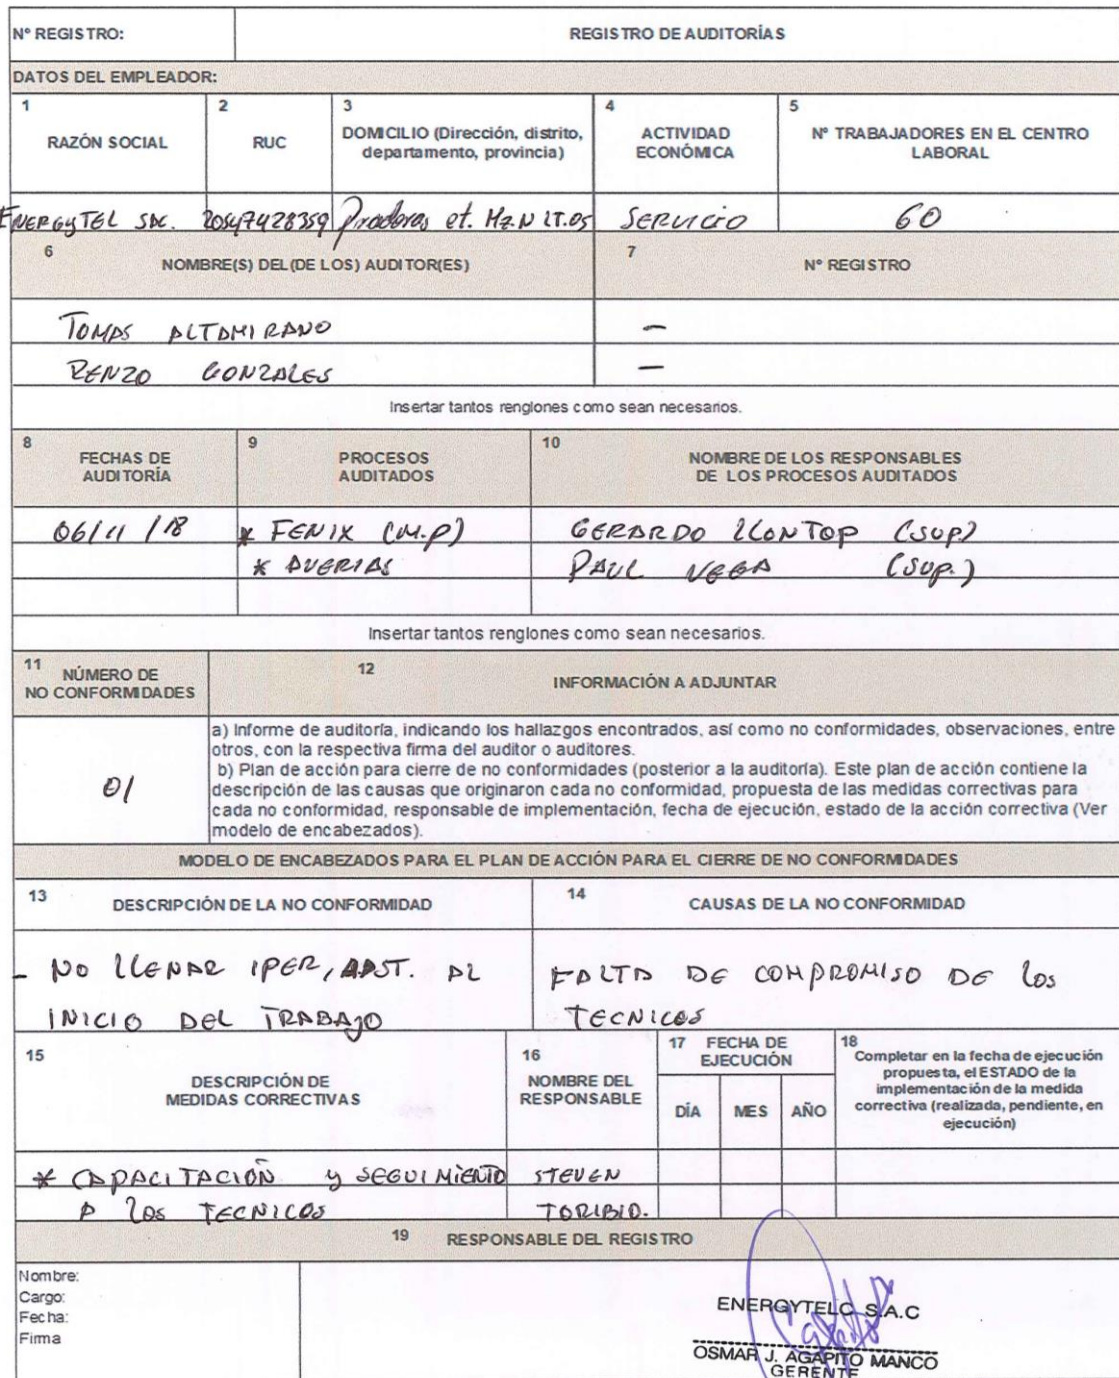 Nº REGISTRO:
REGISTRO DE AUDITORÍAS
DATOS DEL EMPLEADOR:
1
RAZÓN SOCIAL
2
RUC
3
DOMICILIO (Dirección, distrito,
departamento, provincia)
4
ACTIVIDAD
ECONÓMICA
5
Nº TRABAJADORES EN EL CENTRO
LABORAL
ENERGYTEL SAC. 20547428359 Praderas et. Mz.N LT.05 SERVICIO 60
6
NOMBRE(S) DEL(DE LOS) AUDITOR(ES)
7
Nº REGISTRO
TOMAS ALTAMIRANO -
RENZO GONZALES -
Insertar tantos renglones como sean necesarios.
8
FECHAS DE
AUDITORÍA
9
PROCESOS
AUDITADOS
10
NOMBRE DE LOS RESPONSABLES
DE LOS PROCESOS AUDITADOS
06/11/18 * FENIX (M.P) GERARDO LLONTOP (SUP)
* AVERIAS PAUL VEGA (SUP.)
Insertar tantos renglones como sean necesarios.
11
NÚMERO DE
NO CONFORMIDADES
12
INFORMACIÓN A ADJUNTAR
01
a) Informe de auditoría, indicando los hallazgos encontrados, así como no conformidades, observaciones, entre
otros, con la respectiva firma del auditor o auditores.
b) Plan de acción para cierre de no conformidades (posterior a la auditoría). Este plan de acción contiene la
descripción de las causas que originaron cada no conformidad, propuesta de las medidas correctivas para
cada no conformidad, responsable de implementación, fecha de ejecución, estado de la acción correctiva (Ver
modelo de encabezados).
MODELO DE ENCABEZADOS PARA EL PLAN DE ACCIÓN PARA EL CIERRE DE NO CONFORMIDADES
13
DESCRIPCIÓN DE LA NO CONFORMIDAD
14
CAUSAS DE LA NO CONFORMIDAD
- NO LLENAR IPER, AL
INICIO DEL TRABAJO
FALTA DE COMPROMISO DE LOS
TECNICOS
15
DESCRIPCIÓN DE
MEDIDAS CORRECTIVAS
16
NOMBRE DEL
RESPONSABLE
17 FECHA DE
EJECUCIÓN
DÍA MES AÑO
18
Completar en la fecha de ejecución
propuesta, el ESTADO de la
implementación de la medida
correctiva (realizada, pendiente, en
ejecución)
* CAPACITACIÓN Y SEGUIMIENTO STEVEN
A LOS TECNICOS TORIBIO.
19 RESPONSABLE DEL REGISTRO
Nombre:
Cargo:
Fecha:
Firma
ENERGYTELC S.A.C
OSMAR J. AGAPITO MANCO
GERENTE